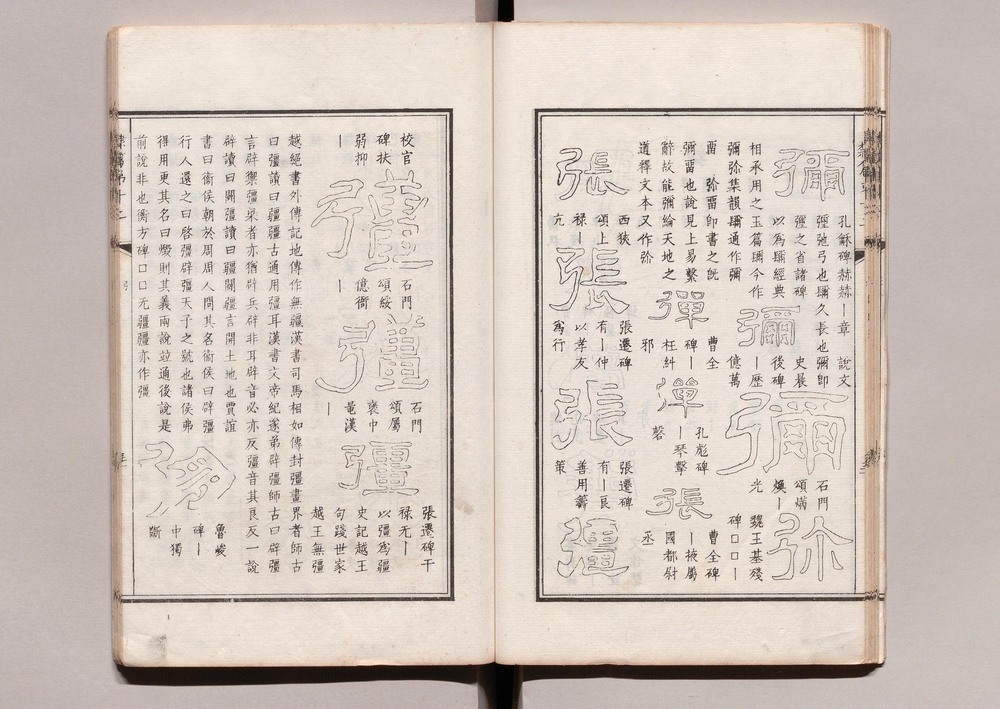 彌
孔龢碑赫赫丨章 說文
彌弛弓也瓕久長也彌即
瓕之省諸碑
以為瓕經典
相承用之玉篇瓕今作
彌弥集韻瓕通作彌
彌
史晨
後碑
丨歷
億萬
彌
石門
頌㷼
煥丨
光
弥
魏王基殘
碑口口丨
雷 弥雷印書之旣
彌雷也說見上易繫
辭故能彌綸天地之
道釋文本又作弥
彈
曹全
碑丨
枉糾
邪
彈
孔彪碑
丨琴擊
磬
張
曹全碑
丨掖屬
國都尉
丞
張
西狹
頌上
祿丨
亢
張
張遷碑
有丨仲
以孝友
為行
張
張遷碑
有丨良
善用籌
策
彊
校官
碑扶
弱抑
丨
彊
石門
頌綏
億衙
丨
彊
石門
頌屬
褒中
鼂漢
丨
彊
張遷碑干
祿无丨
以彊為疆
史記越王
句踐世家
越王無彊
越絕書外傳記地傳作無疆漢書司馬相如傳封彊畫界者師古
曰彊讀曰疆疆古通用彊耳漢書文帝紀遂弟辟彊師古曰辟彊
言辟禦彊梁者亦猶辟兵辟非耳辟音必亦反彊音其良反一說
辟讀曰闢彊讀曰疆闢疆言開土地也賈誼
書曰衞侯朝於周周人問其名衞侯曰辟疆
行人還之曰啓彊辟彊天子之號也諸侯弗
得用更其名曰燬則其義兩說竝通後說是
前說非也衡方碑口口无疆疆亦作彊
魯峻
碑丨
中獨
斷